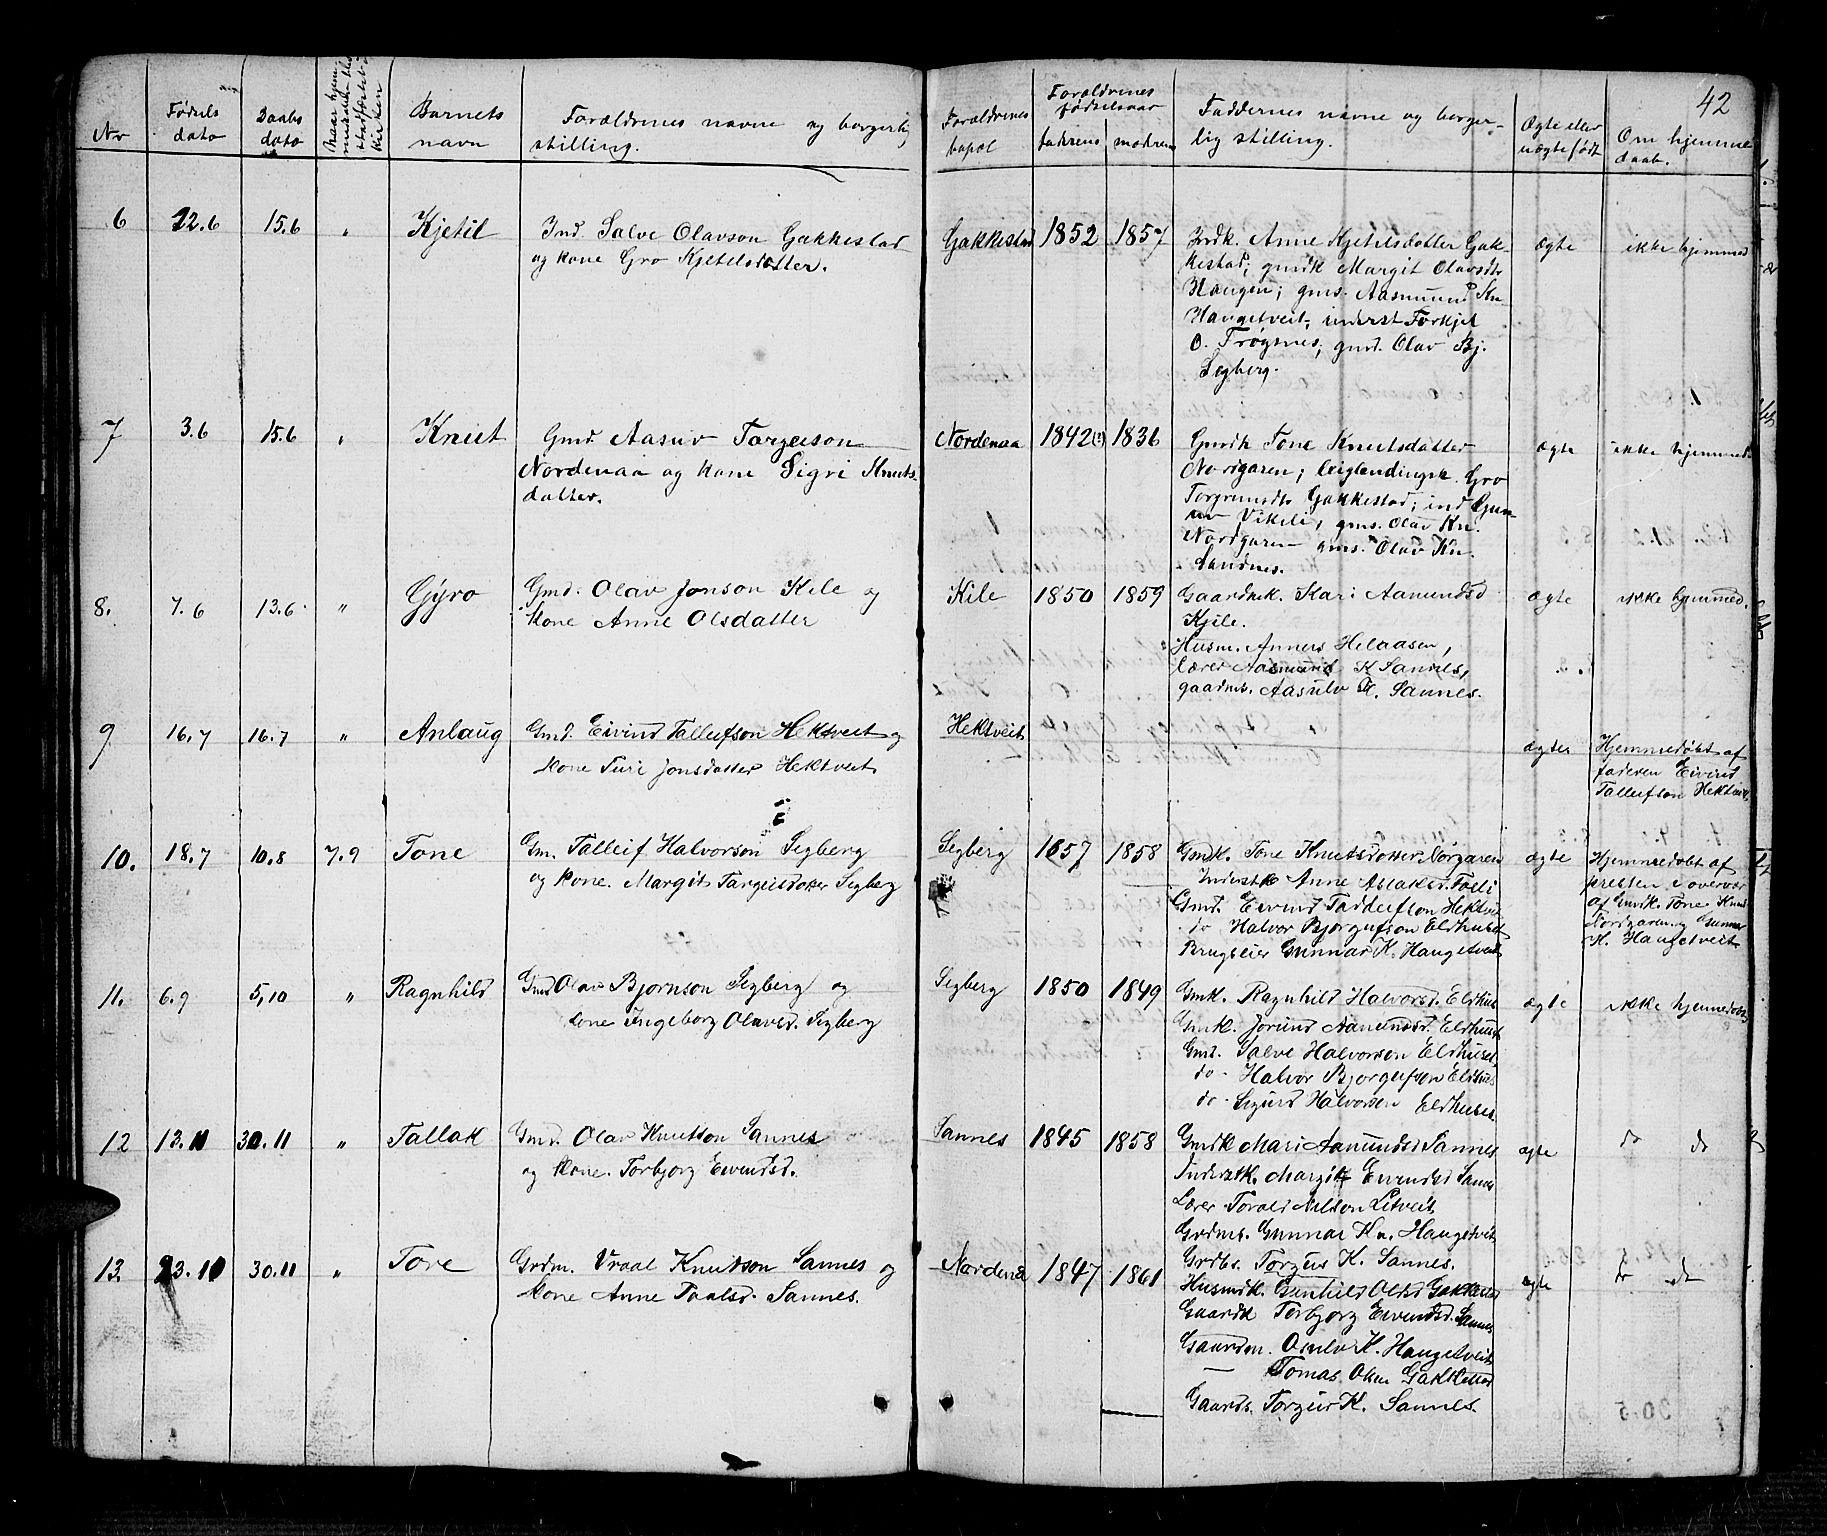 42
Nr
Fødsels dato
Daabs dato
Naar hjemmedaaben blev stadfæstet i kirken
Barnets navn
Forældrenes navne og borgerlig stilling.
Forældrenes bopæl
Forældrenes fødselsaar
faderens
moderens
Faddernes navne og borgerlig stilling.
Ægte eller uægte født
Om hjemmedaab.
6 12.6 15.6 " Kjetil
Ind. Salve Olavson Gakkestad
og kone Gro Kjetelsdatter.
Gakkestad 1852 1857
Indk. Anne Kjetelsdatter Gak-
kestad; gmdk Margit Olavsdtr
Haugen; gms. Aasmund Kn.
Haugetveit, inderst Torkjel
O. Trøgsnes; gmd. Olav Bj.
Segberg.
ægte ikke hjemmed
7 3.6 15.6 " Knut
Gmd. Aasuv Targeison
Nordenaa og kone Sigri Knuts-
datter.
Nordenaa 1842(?) 1836
Gmdk Tone Knutsdatter
Nordgaren; Gro
Torgrimsdtr Gakkestad; ind Gun-
uv Vikili, gms. Olav Kn.
Nordgaren gms. Olav Kn.
Sandnes.
ægte ikke hjemmed.
8. 7.6 13.6 " Gyro
Gmd. Olav Jonson Kile og
kone Anne Olsdatter
Kile 1850 1859
Gaardmk. Kari Aamundsd
Kjile.
Husm. Anners Helaasen,
lærer Aasmund K Sannes,
gaardms. Aasulv K. Sannes.
ægte ikke hjemmed.
9 16.7 16.7 " Anlaug
Gmd. Eivind Talleifson Hektveit og
kone Turi Jonsdatter Hektveit
Hektveit
ægte
Hjemmedøbt af
faderen Eivind
Talleifson Hektveit
10. 18.7 10.8 7.9 Tone
Gm. Talleif Halvorson Segberg
og kone. Margit Targeisdotter Segberg
Segberg 1857 1858
Gmdk. Tone Knutsdotter Norgaren
Inderstk Anne Aslaksd. Toeli
Gmd. Eivind Talleifson Hektveit
do Halvor Bjorgufson Eldhuset
Brugseier Gunnar K. Haugetveit
ægte
Hjemmedøbt af
presten i overvær
af Gmdk. Tone Knud
Nordgaren og Gunnar
K. Haugetveit
11. 6.9 5.10 " Ragnhild
Gmd Olav Bjornson Segberg og
kone Ingeborg Olavsd. Segberg
Segberg 1850 1849
Gmk. Ragnhild Halvorsd. Eldhus
Gmk. Jorund Aamundsd. Eldhuset
Gmd. Salve Halvorson Eldhuset
do - Halvor Bjorgufson Eldhus
do - Sigurd Halvorson Eldhuset
ægte ikke hjemmedøbt
12 13.11 30.11 " Tallak
Gmd. Olav Knutson Sannes
og kone. Torbjorg Eivendsd.
Sannes 1845 1858
Gmdk Mari Aamundsd Sannes
Inderstk. Margit Eivendsd Sannes
Lærer Torald Nilson Litveit
Grdms. Gunnar Kn. Haugetveit
Grdbs. Torgus K. Sannes.
ægte do do
13. 23.10 30.11 " Tore
Grdm. Vraal Knutson Sannes og
kone Anne Taalsd. Sannes.
Nordenaa 1847 1861
Husmdk. Gunhild Olsd Gakkestad
Gaardk Torbjorg Eivendsd. Sannes
Gaardm. Osulv K. Haugetveit
— Tomas Olsen Gakkestad
Gaards. Torgeir K. Sannes.
ægte do do